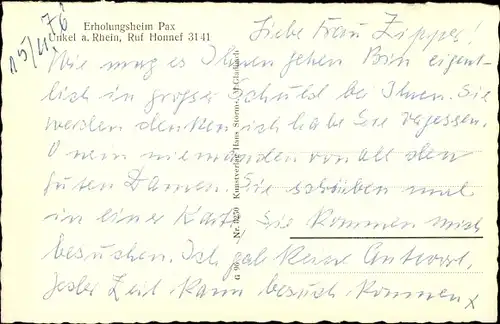 15/11.76
Erholungsheim Pax
Unkel a. Rhein, Ruf Honnef 3141
Liebe Frau Zipper!
Wie mag es Ihnen gehen Bin eigent-
lich in großer Schuld bei Ihnen. Sie
werden denken ich habe Sie vergessen.
O nein niemanden von all den
guten Damen. Sie schrieben mal
in einer Karte Sie kommen mich
besuchen. Ich gab keine Antwort,
jeder Zeit kann besuch kommen x
Kunstverlag Hans Storms, M.Gladbach